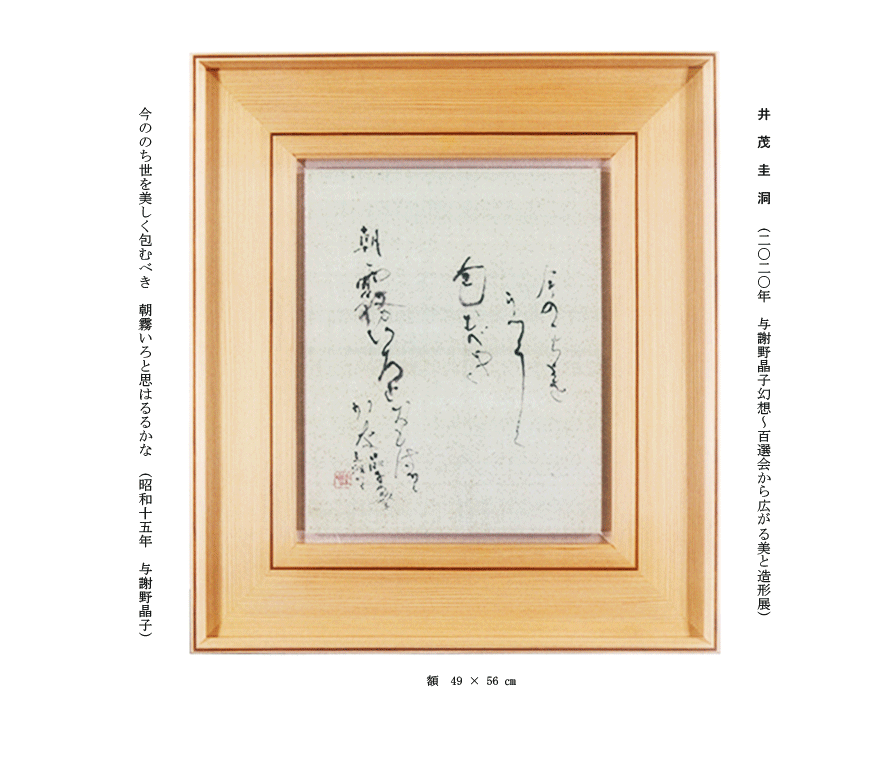 井茂圭洞 （二〇二〇年 与謝野晶子幻想～百選会から広がる美と造形展）
今のゝち世を
うつくしく
包むべき
朝霧いろと
おもはるゝ
かな
今ののち世を美しく包むべき 朝霧いろと思はるるかな （昭和十五年 与謝野晶子）
額 49 × 56 ㎝